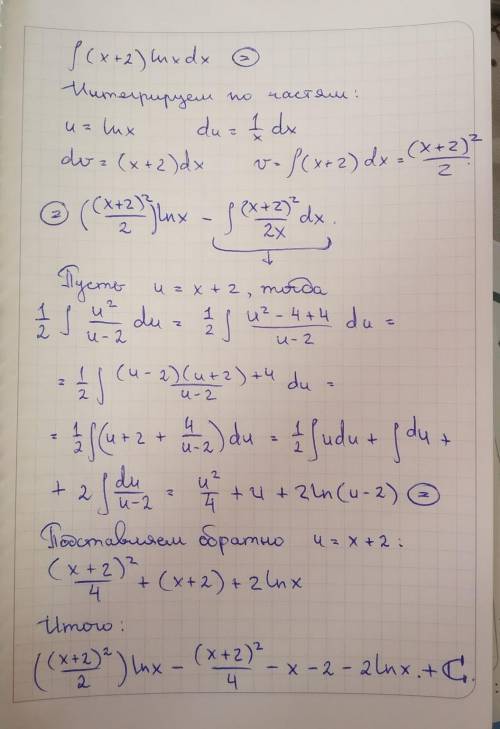 ∫(x+2) lnx dx ⊜
Интегрируем по частям:
u = lnx du = 1/x dx
dv = (x+2)dx v = ∫(x+2)dx = (x+2)²/2.
⊜ ((x+2)²/2) lnx - ∫ (x+2)²/2x dx.
↓
Пусть u = x+2, тогда
1/2 ∫ u²/(u-2) du = 1/2 ∫ (u²-4+4)/(u-2) du =
= 1/2 ∫ ((u-2)(u+2)+4)/(u-2) du =
= 1/2 ∫(u+2+4/(u-2))du = 1/2 ∫udu + ∫du +
+ 2 ∫ du/(u-2) = u²/4 + u + 2ln(u-2) ⊜
Подставляем обратно u = x+2:
(x+2)²/4 + (x+2) + 2lnx
Итого:
((x+2)²/2) lnx - (x+2)²/4 - x - 2 - 2lnx. + C.